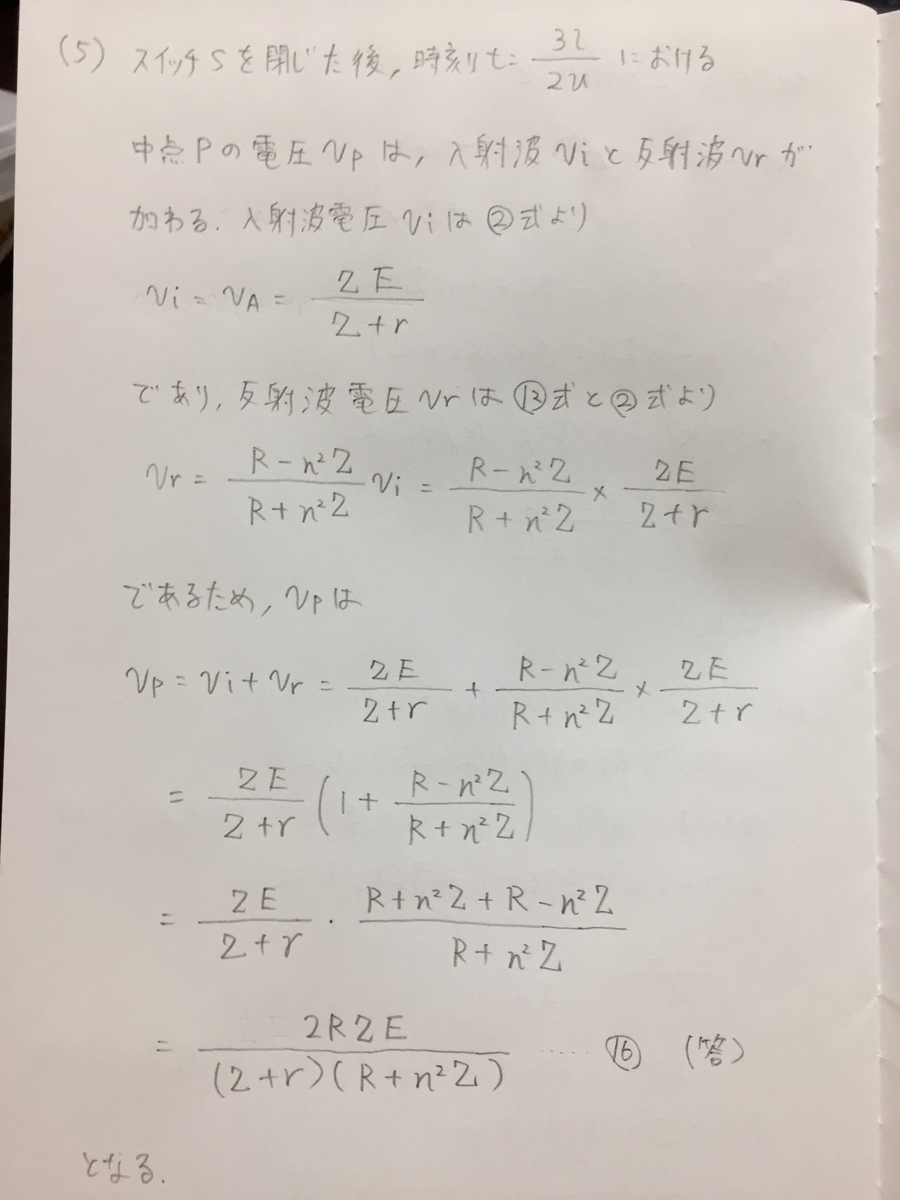 (5) スイッチSを閉じた後, 時刻t= 3l/2u における
中点Pの電圧 vp は, 入射波 vi と反射波 vr が
加わる. 入射波電圧 vi は ②式より
vi = vA = ZE/(Z+r)
であり, 反射波電圧 vr は ⑬式と②式より
vr = (R-n²Z)/(R+n²Z) vi = (R-n²Z)/(R+n²Z) × ZE/(Z+r)
であるため, vp は
vp = vi + vr = ZE/(Z+r) + (R-n²Z)/(R+n²Z) × ZE/(Z+r)
= ZE/(Z+r) (1 + (R-n²Z)/(R+n²Z))
= ZE/(Z+r) · (R+n²Z+R-n²Z)/(R+n²Z)
= 2RZE/((Z+r)(R+n²Z)) ····· ⑯ (答)
となる.